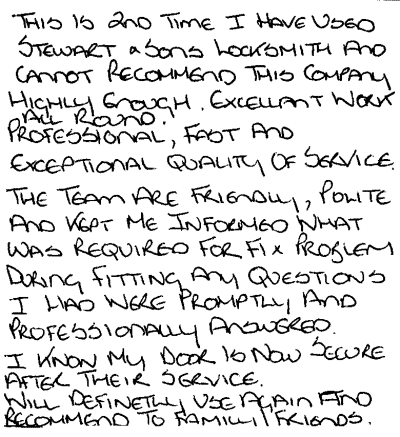 THIS IS 2ND TIME I HAVE USED
STEWART & SONS LOCKSMITH AND
CANNOT RECOMMEND THIS COMPANY
HIGHLY ENOUGH. EXCELLANT WORK
ALL ROUND.
PROFESSIONAL, FAST AND
EXCEPTIONAL QUALITY OF SERVICE.
THE TEAM ARE FRIENDLY, POLITE
AND KEPT ME INFORMED WHAT
WAS REQUIRED FOR FIX PROBLEM
DURING FITTING ANY QUESTIONS
I HAD WERE PROMPTLY AND
PROFESSIONALLY ANSWERED.
I KNOW MY DOOR IS NOW SECURE
AFTER THEIR SERVICE.
WILL DEFINETLY USE AGAIN AND
RECOMMEND TO FAMILY/FRIENDS.